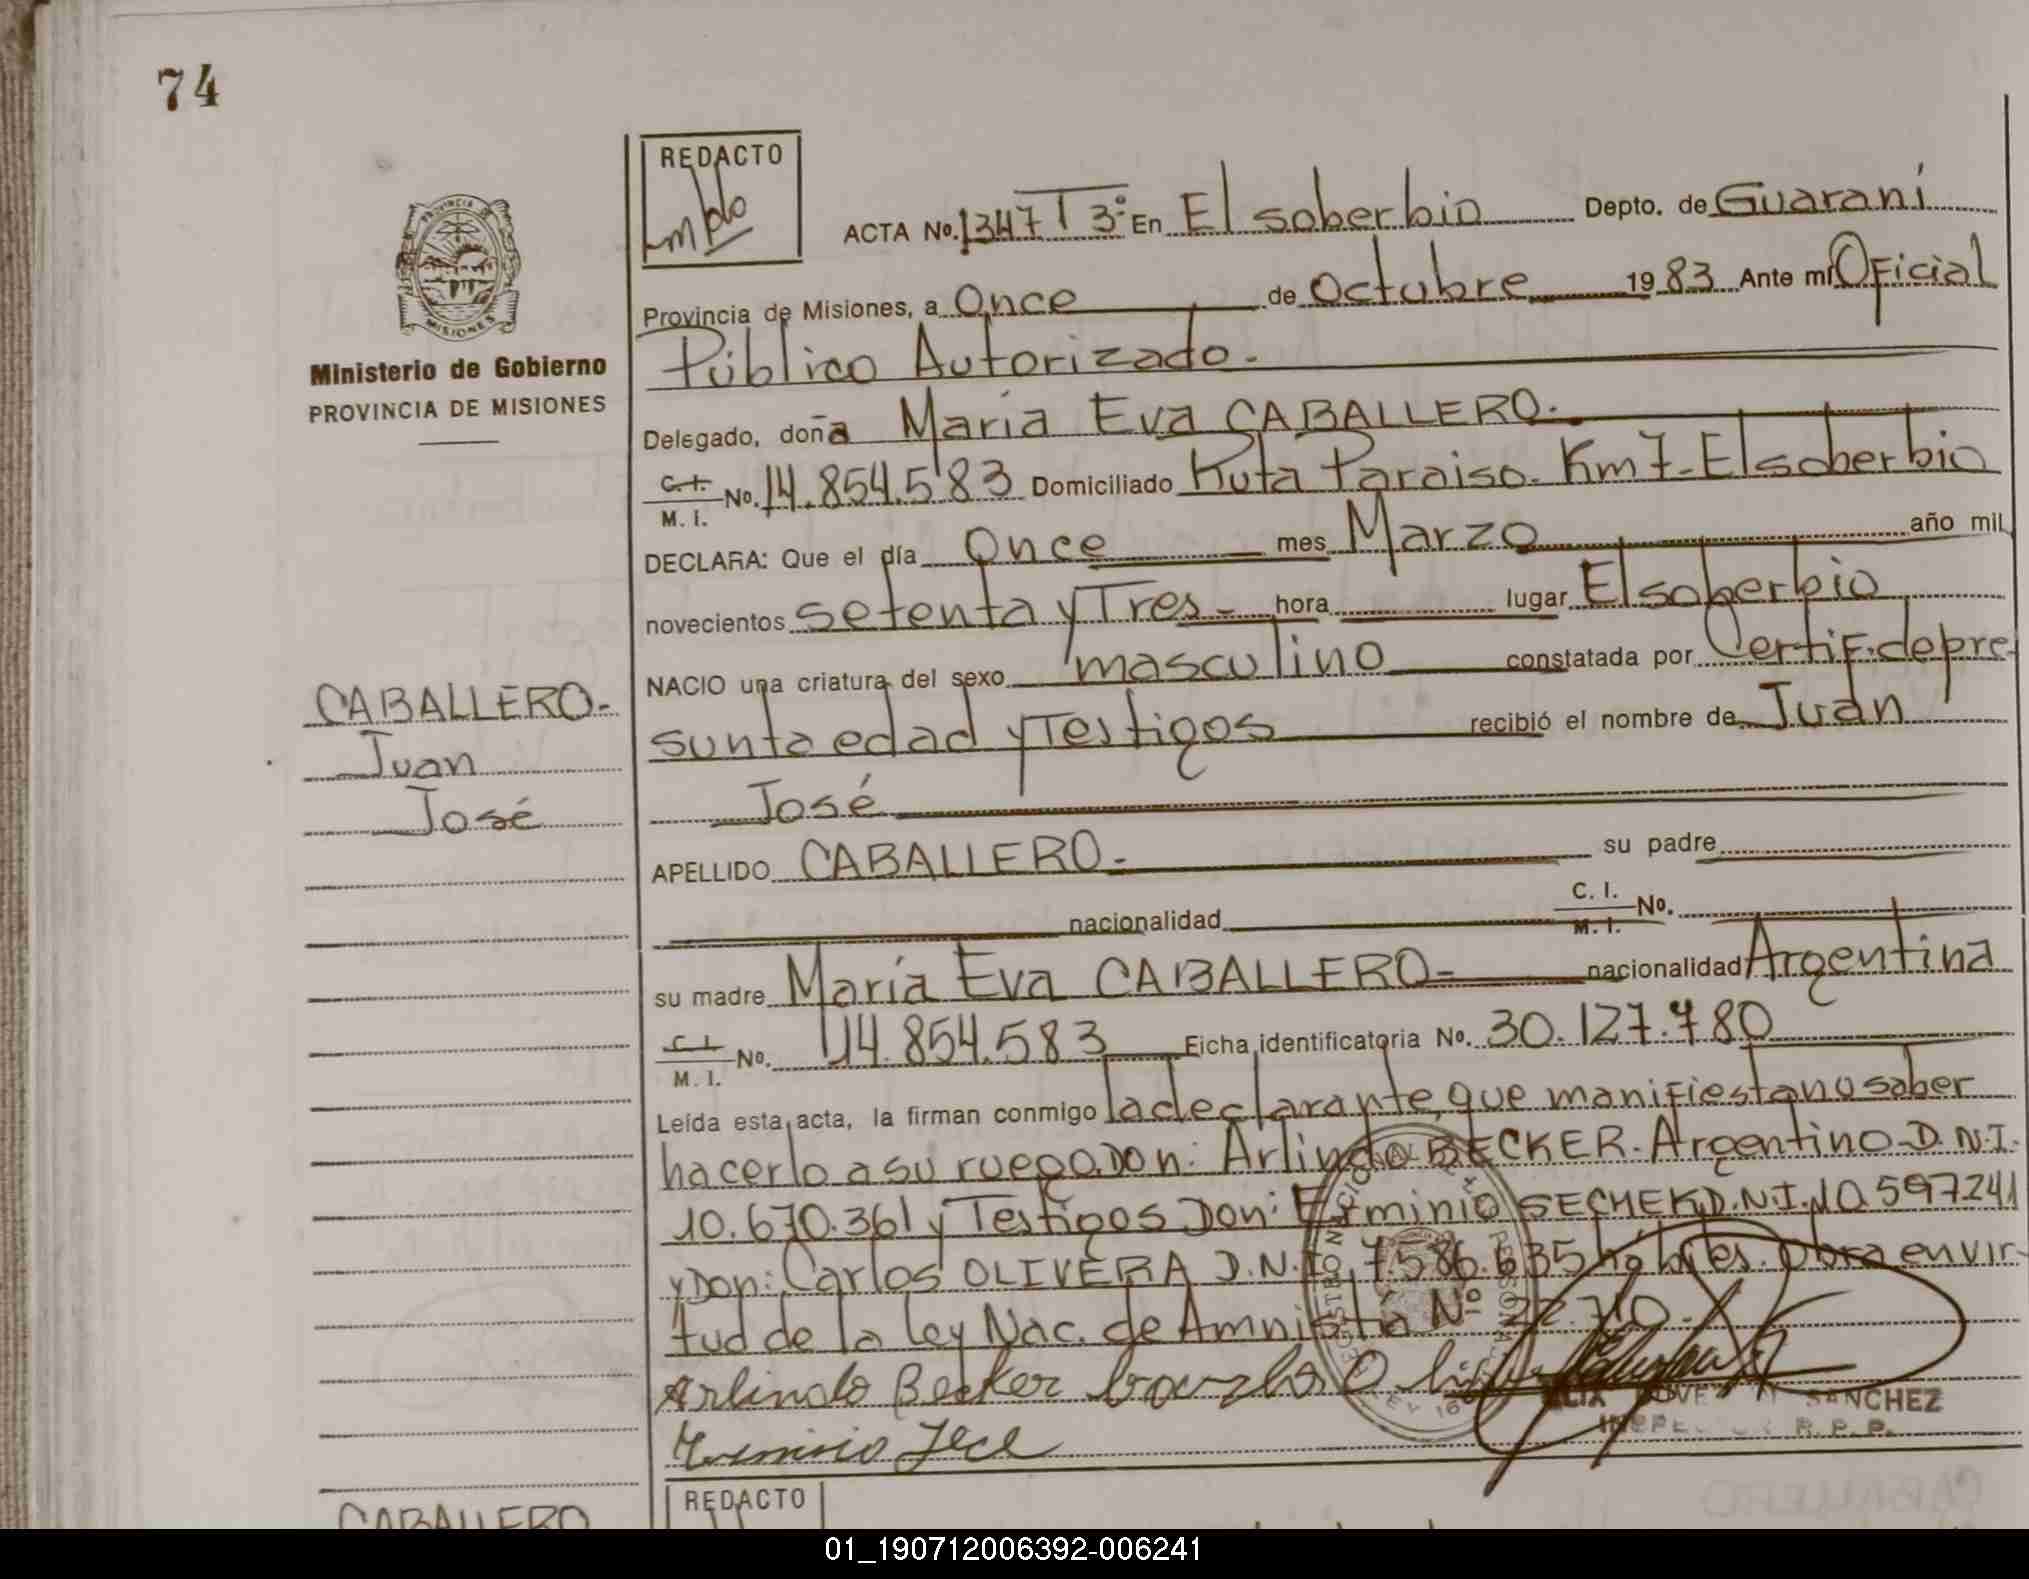 74
REDACTO
ACTA No. 1347 T 3º En El soberbio Depto. de Guaraní
Provincia de Misiones, a Once de Octubre 1983 Ante mí Oficial
Público Autorizado.-
Ministerio de Gobierno
PROVINCIA DE MISIONES
Delegado, doña María Eva CABALLERO.-
C.I. M.I. No. 14.854.583 Domiciliado Ruta Paraiso. Km 7- El soberbio
DECLARA: Que el día Once mes Marzo año mil
novecientos setenta y Tres- hora lugar El soberbio
NACIO una criatura del sexo masculino constatada por Certif. de pre-
sunta edad y Testigos recibió el nombre de Juan
José
CABALLERO-
Juan
José
APELLIDO CABALLERO.- su padre
nacionalidad C. I. M. I. No.
su madre María Eva CABALLERO- nacionalidad Argentina
C.I. M. I. No. 14.854.583 Ficha identificatoria No. 30.127.780
Leída esta acta, la firman conmigo la declarante, que manifiesta no saber
hacerlo a su ruego Don: Arlindo BECKER. Argentino-D.N.I.
10.670.361 y Testigos Don: Erminio SECHEK D.N.I. 10.597241
y Don: Carlos OLIVERA D.N.I. 7.586.635 hábiles. Obra en vir-
tud de la Ley Nac. de Amnistía Nº 22.710.-
Arlindo Becker
SANCHEZ
R. P. P.
REDACTO
CABALLERO
01_190712006392-006241